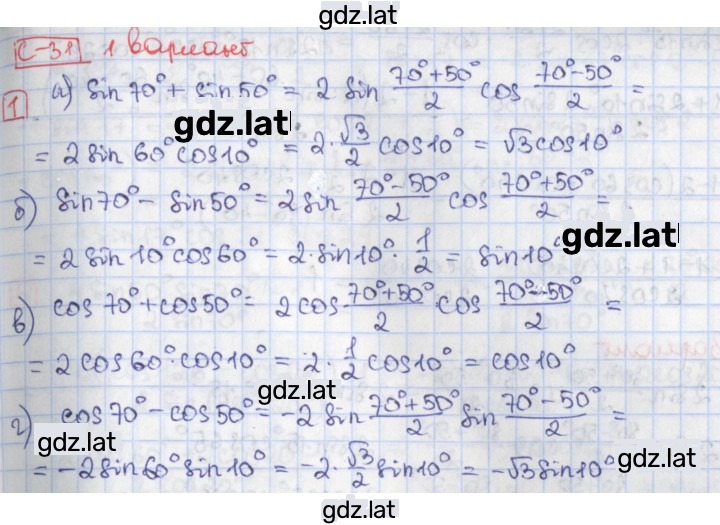 gdz.lat
С-31 1 вариант
1 а) sin 70° + sin 50° = 2 sin (70° + 50°)/2 cos (70° - 50°)/2 =
gdz.lat
= 2 sin 60° cos 10° = 2 · √3/2 cos 10° = √3 cos 10°
б) sin 70° - sin 50° = 2 sin (70° - 50°)/2 cos (70° + 50°)/2 =
gdz.lat
= 2 sin 10° cos 60° = 2 · sin 10° · 1/2 = sin 10°
в) cos 70° + cos 50° = 2 cos (70° + 50°)/2 cos (70° - 50°)/2 =
= 2 cos 60° · cos 10° = 2 · 1/2 cos 10° = cos 10°
gdz.lat
г) cos 70° - cos 50° = -2 sin (70° + 50°)/2 sin (70° - 50°)/2 =
gdz.lat
gdz.lat
= -2 sin 60° sin 10° = -2 · √3/2 sin 10° = -√3 sin 10°
gdz.lat